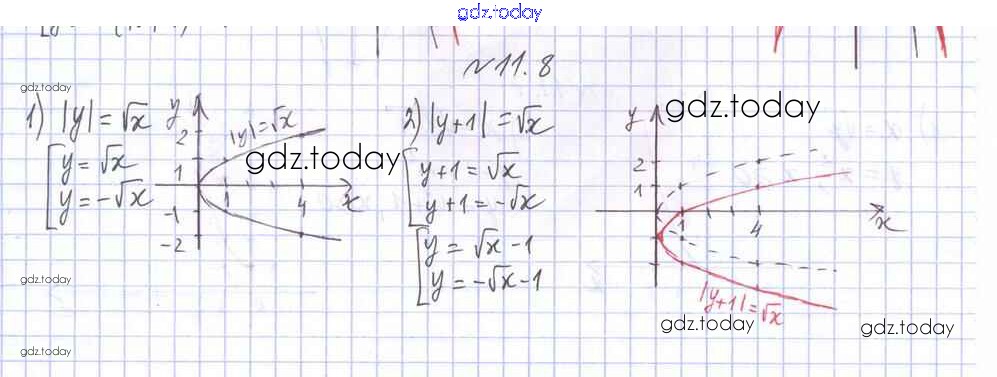 gdz.today
№11.8
gdz.today
1) |y| = √x
y = √x
y = -√x
y
2
1
-1
-2
4
x
|y| = √x
gdz.today
2) |y+1| = √x
y+1 = √x
y+1 = -√x
y = √x - 1
y = -√x - 1
gdz.today
y
2
1
1
4
x
|y+1| = √x
gdz.today
gdz.today
gdz.today
gdz.today